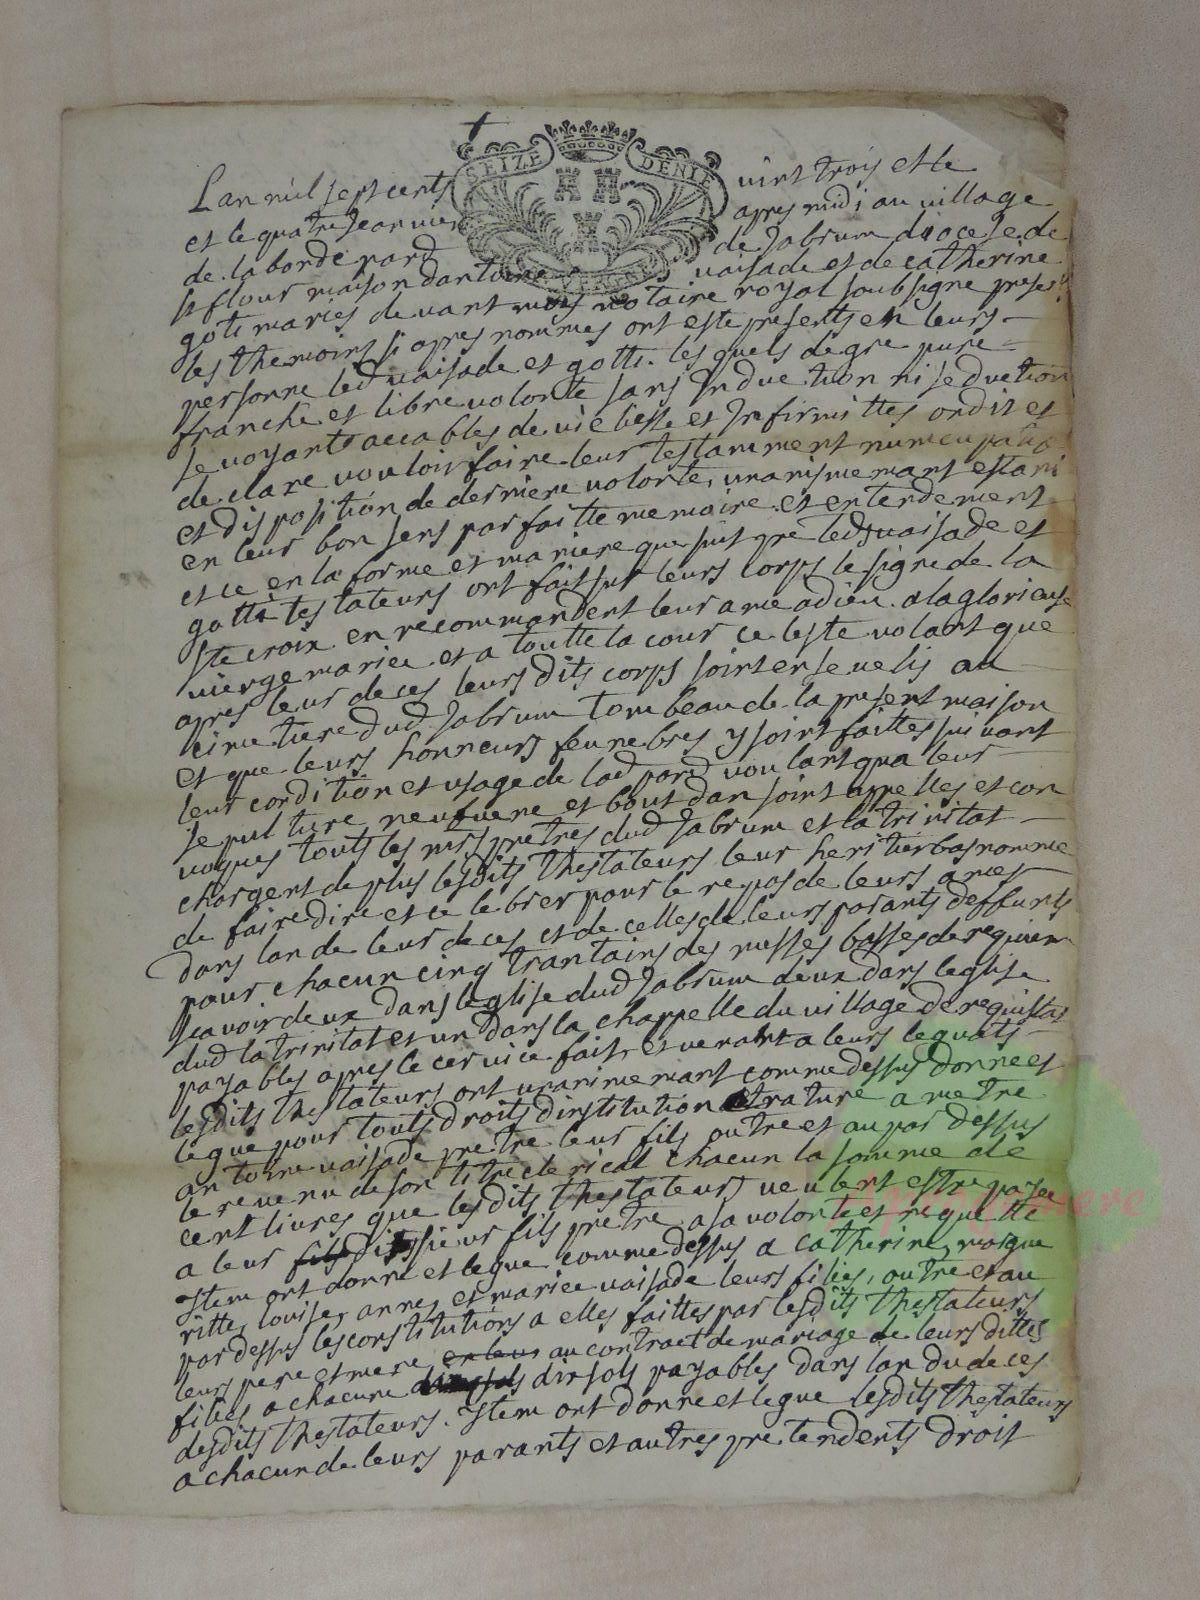 SEIZE DENIE
Lan mil sept cents vint trois et le
et le quatre Jeanvier apres midi au village
de la borde part de Jabrum diocese de
st flour maison dantoine vaisade et de catherine
goti maries devant moy notaire royal soubsigne presents
les themoins si apres nommes ont este presents en leurs
personne led vaisade et gotti. les quels de gre pure
franche et libre volonte sans Induction ni seduction
se voyants accables de vielliesse et Infirmittes ont dit et
declare vouloir faire leur testamment nuncupatif
et disposition de derniere volonte, unanismemant estant
en leur bon sens parfaitte memoire et entendement
et ce en la forme et maniere que suit que led vaisade et
gotti testateurs ont fait sur leurs corps le signe de la
ste croix en recommandent leur ame a dieu. a la glorieuse
vierge mariee et a toutte la cour celeste volant que
apres leur deces leurs dits corps soint ensevelis au
cimetiere dud Jabrum tombeau de la present maison
et que leurs honneurs feunebres y soint faittes suivant
leur cordition et usage de lad par voulant qua leur
sepulture neufvene et bout dan soint appelles et con
voques touts les mrs pretres dud Jabrum et la trinitat
chargent de plus lesdits thestateurs leur heritier bas nomme
de faire dire et celebrer pour le repos de leurs ames
dans lan de leur deces et de celles de leurs parants deffunts
pour chacun cinq trantains des messes basses de requiem
scavoir deux dans leglise dud Jabrum deux dans leglise
dud la trinitat et un dans la chappelle du village de requistat
payables apres le cervice fait, et venant a leurs lequats
lesdits thestateurs ont unanimemant comme dessus donne et
legue pour touts droits dinstitution nature a metre
antoine vaisade pretre leur fils outre et au par dessus
le revenu de son titre clerical chacun la somme de
cent livres que lesdits thestateurs veulent estre payee
a leur dit sieur fils pretre a sa volonte et requette
Item ont donne et legue comme dessus a catherine, margue
ritte, louise, anne, et mariee vaisade leurs filies, outre et au
par dessus les constitutions a elles faittes par lesdits thestateurs
leurs pere et mere en leur au contract de mariage de leurs dittes
filies a chacune dix sols payables dans lan du deces
desdits thestateurs. Item ont donne et legue lesdits thestateurs
a chacun de leurs parants et autres pretendents droit